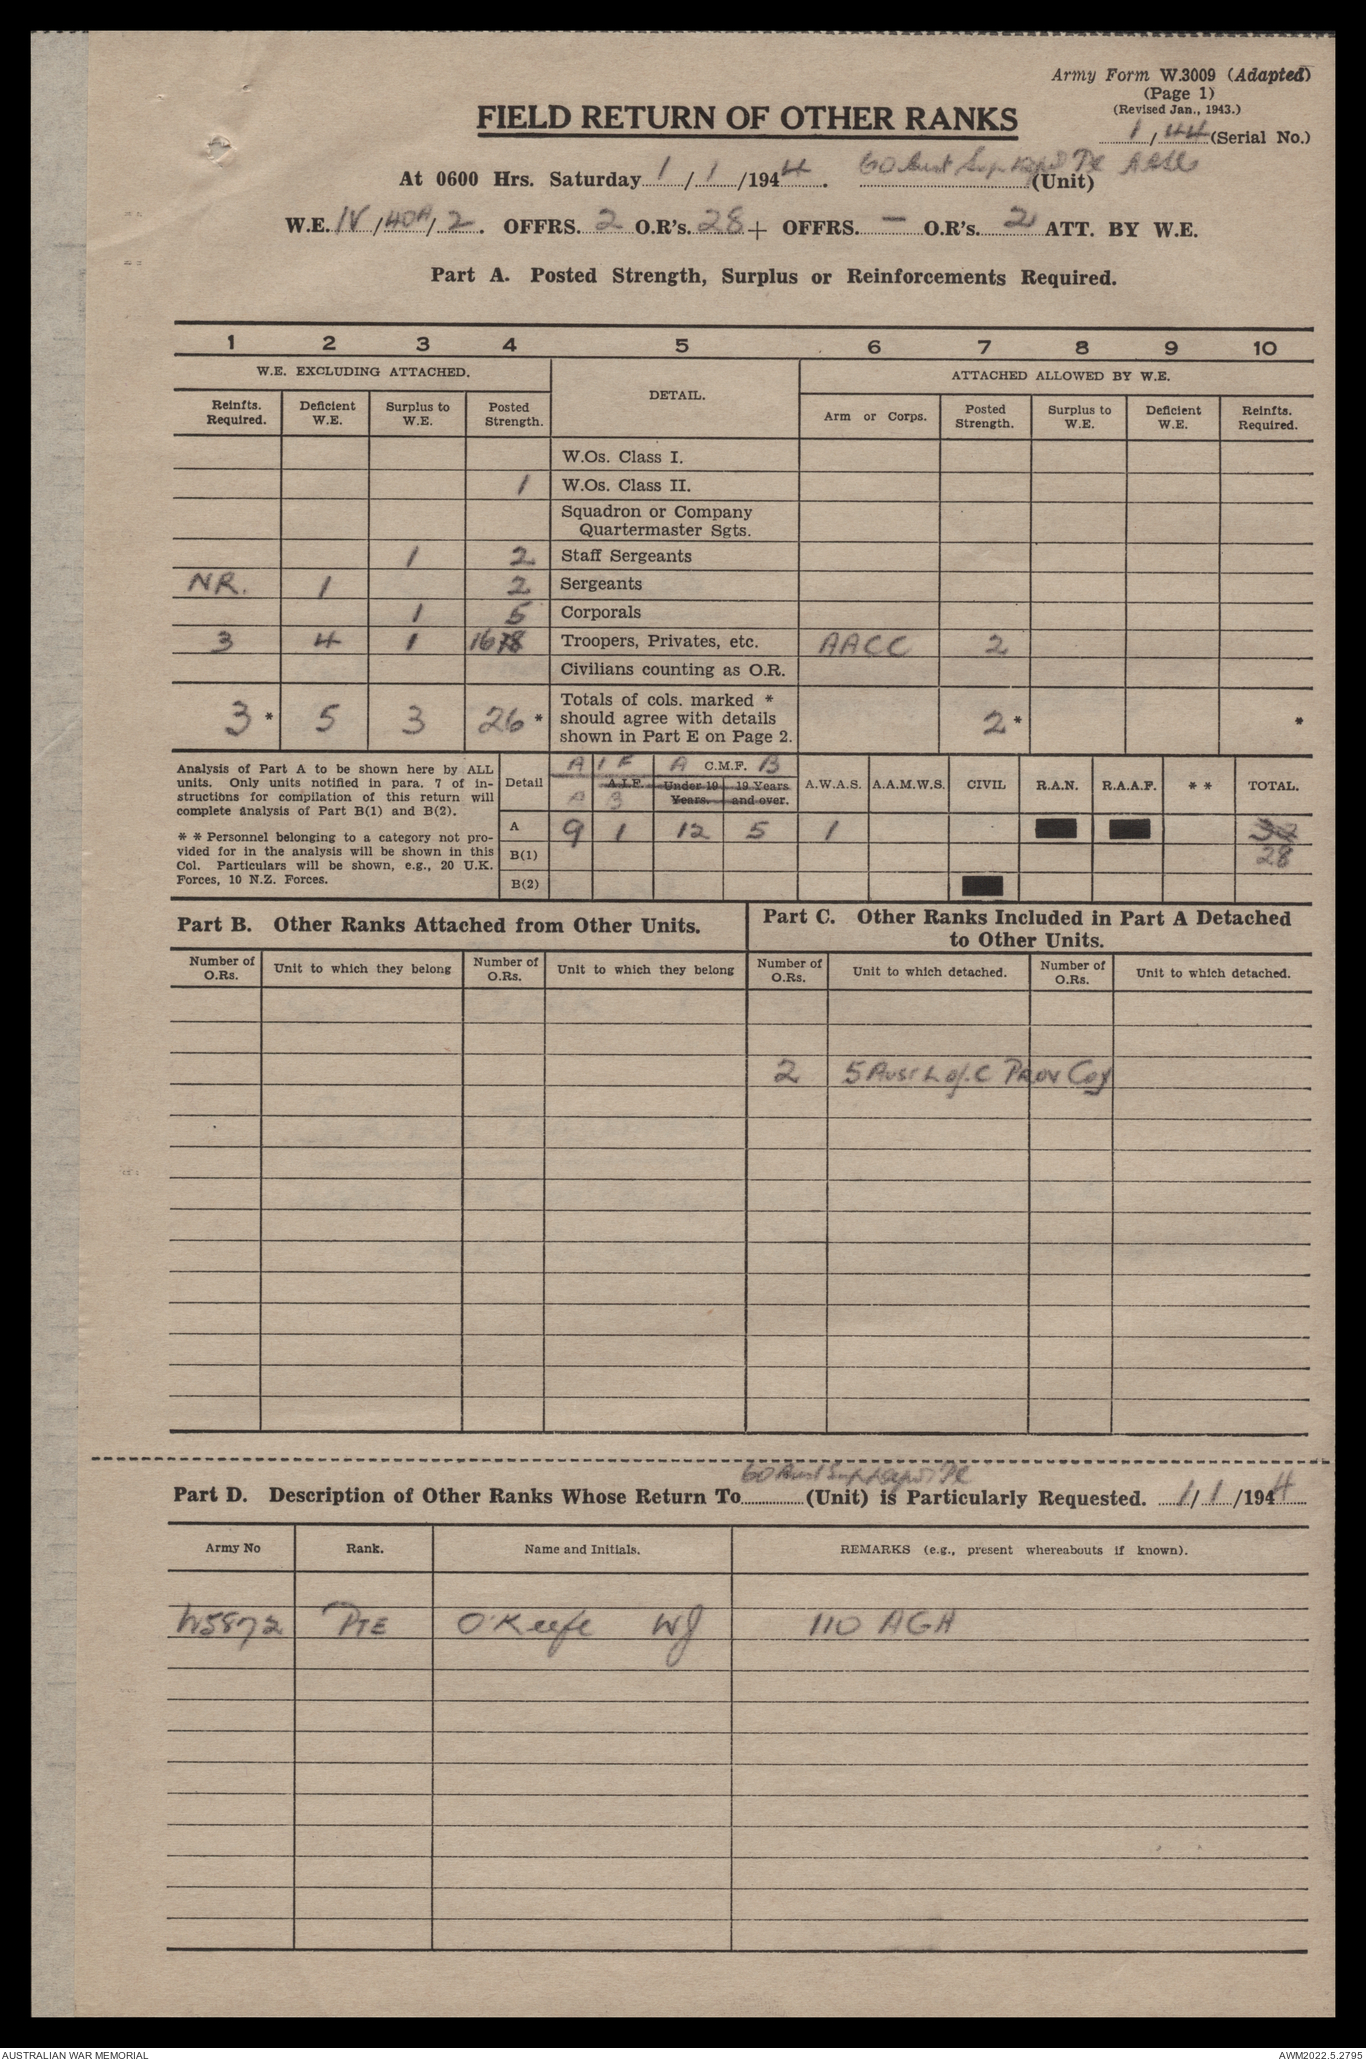 Army Form W.3009 (Adapted)
(Page 1)
(Revised Jan., 1943.)
FIELD RETURN OF OTHER RANKS
1/44 (Serial No.)
At 0600 Hrs. Saturday 1/1/1944. 60 Aust Sup Depot Pl AASC (Unit)
W.E. IV/40A/2. OFFRS. 2 O.R's. 28 + OFFRS. — O.R's. 2 ATT. BY W.E.
Part A. Posted Strength, Surplus or Reinforcements Required.
1 2 3 4 5 6 7 8 9 10
W.E. EXCLUDING ATTACHED. DETAIL. ATTACHED ALLOWED BY W.E.
Reinfts. Required. Deficient W.E. Surplus to W.E. Posted Strength. Arm or Corps. Posted Strength. Surplus to W.E. Deficient W.E. Reinfts. Required.
W.Os. Class I.
1 W.Os. Class II.
Squadron or Company
Quartermaster Sgts.
1 2 Staff Sergeants
NR. 1 2 Sergeants
1 5 Corporals
3 4 1 16 Troopers, Privates, etc. AACC 2
Civilians counting as O.R.
3 * 5 3 26 * Totals of cols. marked * should agree with details shown in Part E on Page 2. 2 * *
Analysis of Part A to be shown here by ALL
units. Only units notified in para. 7 of in-
structions for compilation of this return will
complete analysis of Part B(1) and B(2).
* * Personnel belonging to a category not pro-
vided for in the analysis will be shown in this
Col. Particulars will be shown, e.g., 20 U.K.
Forces, 10 N.Z. Forces.
Detail AIF A.I.F. A B A C.M.F. B Under 19 Years. 19 Years and over. A.W.A.S. A.A.M.W.S. CIVIL R.A.N. R.A.A.F. * * TOTAL.
A 9 1 12 5 1 32
B(1) 28
B(2)
Part B. Other Ranks Attached from Other Units.
Part C. Other Ranks Included in Part A Detached
to Other Units.
Number of O.Rs. Unit to which they belong Number of O.Rs. Unit to which they belong Number of O.Rs. Unit to which detached. Number of O.Rs. Unit to which detached.
2 5 Aust L of C Prov Coy
60 Aust Sup Depot Pl
Part D. Description of Other Ranks Whose Return To (Unit) is Particularly Requested. 1/1/1944
Army No Rank. Name and Initials. REMARKS (e.g., present whereabouts if known).
W5872 PTE O'Keefe WJ 110 AGH
AUSTRALIAN WAR MEMORIAL AWM2022.5.2795